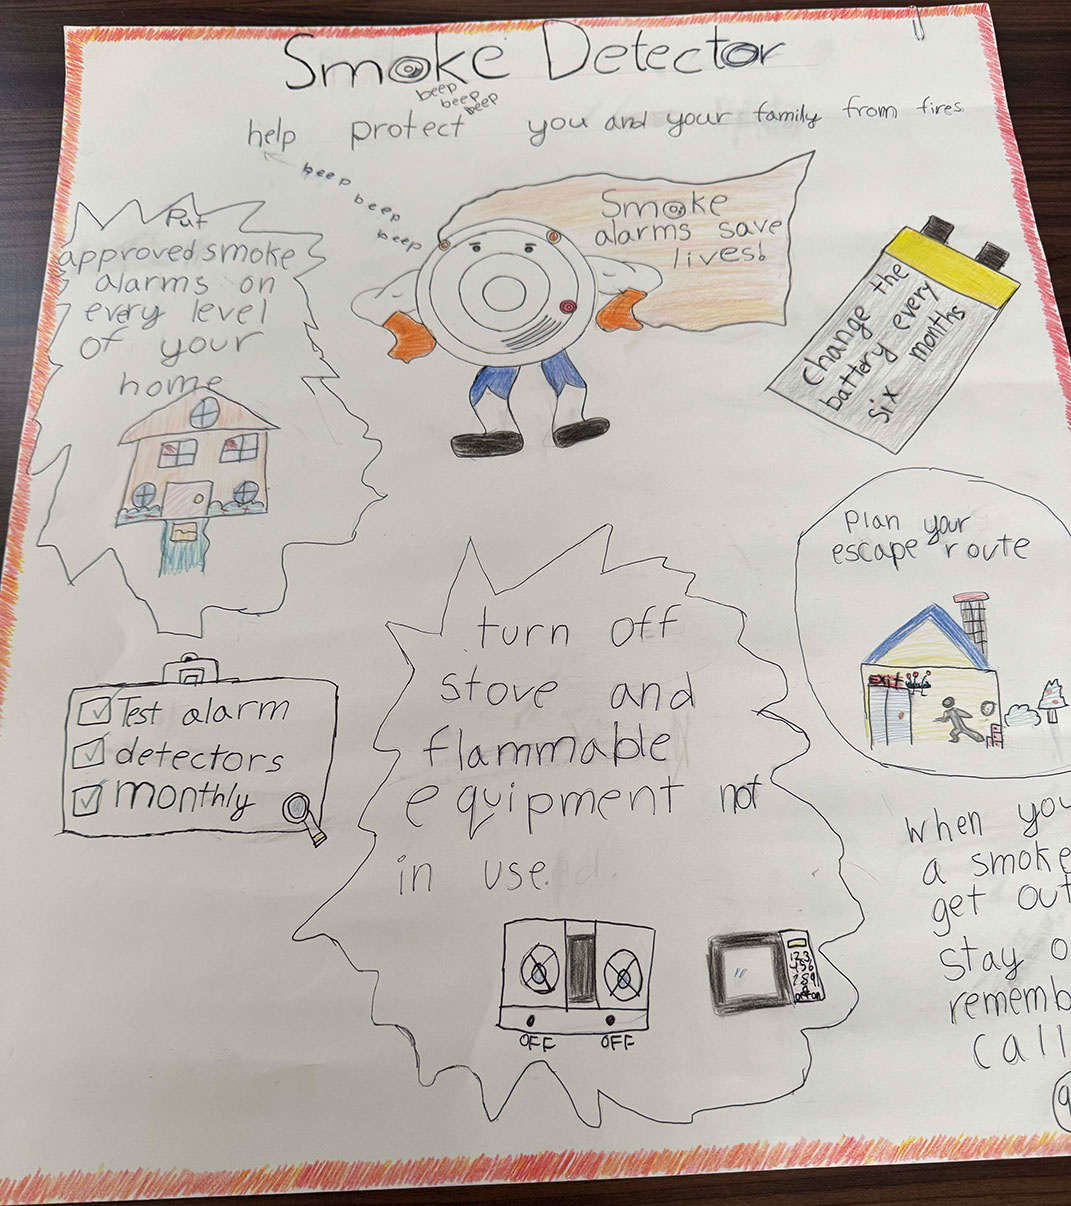 Smoke Detector
beep
beep
beep
help protect you and your family from fires
beep
beep
beep
Smoke
alarms save
lives!
Put
approved smoke
alarms on
every level
of your
home
Change the
battery every
six months
plan your
escape route
Exit
Test alarm
detectors
monthly
turn off
stove and
flammable
equipment not
in use.
OFF OFF
123
456
789
0
when you
a smoke
get out
stay
call